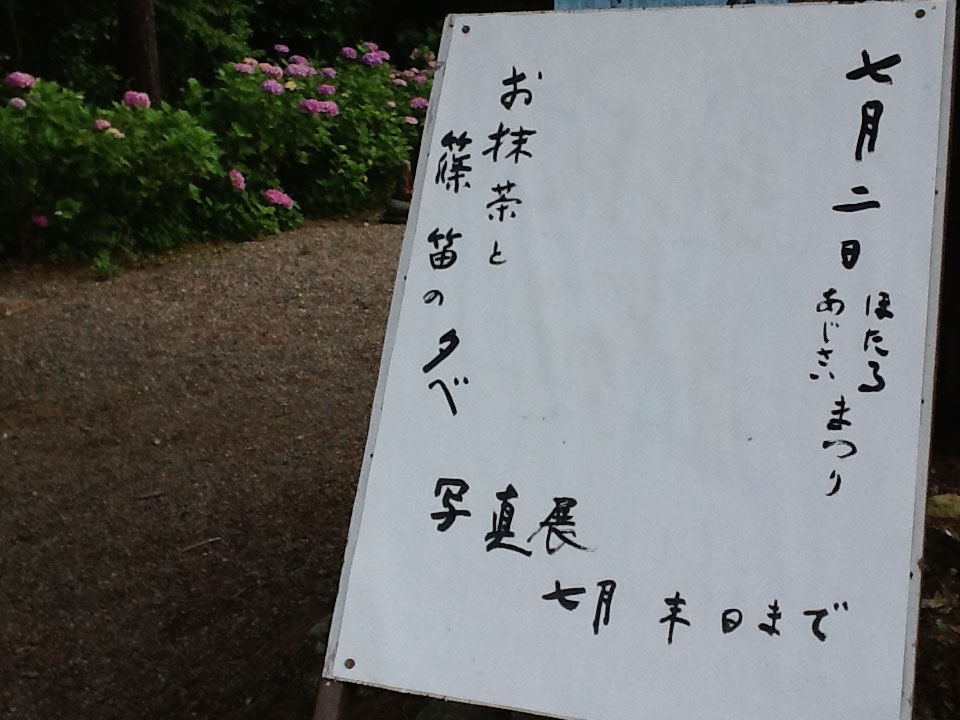 七月二日
ほたる
あじさい
まつり
お抹茶と
篠笛の夕べ
写真展
七月末日まで